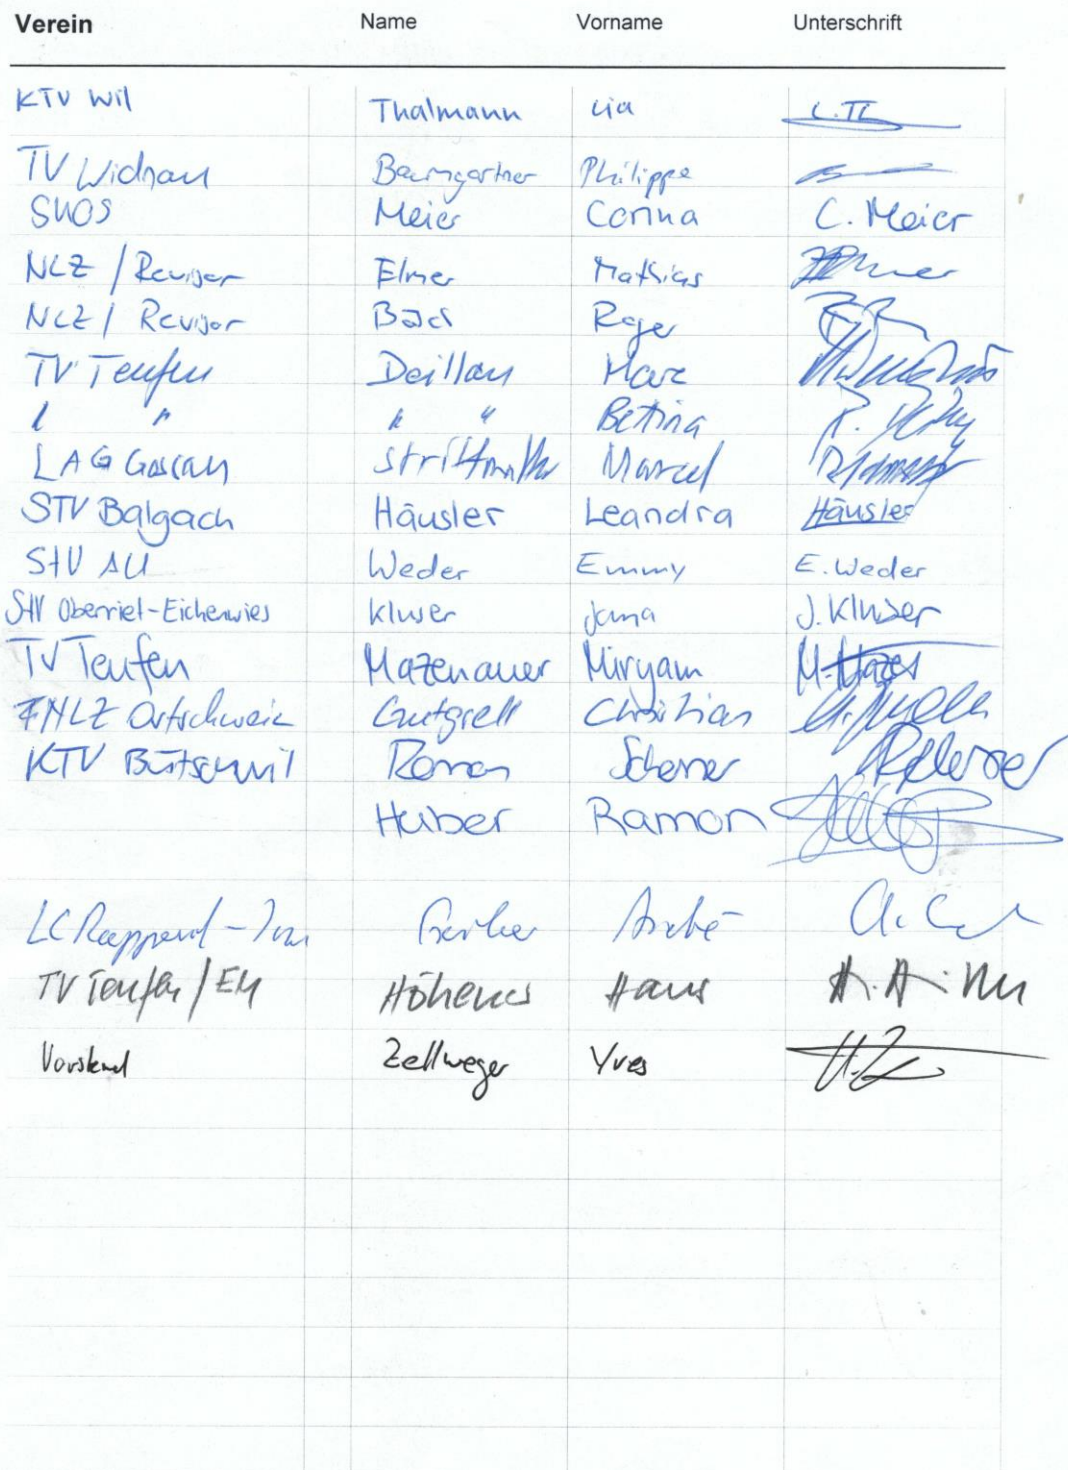 Verein Name Vorname Unterschrift
KTV Wil Thalmann Lia L.Th
TV Widnau Baumgartner Philippe
SVOS Meier Corina C. Meier
NLZ / Revisor Elmer Mathias
NLZ / Revisor Roger
TV Teufen Deillon Marc
" " " " Bettina
LAG Gossau Strittmatter Marcel
STV Balgach Häusler Leandra Häusler
StV AU Weder Emmy E. Weder
StV Oberriet-Eichenwies Kluser Jana J. Kluser
TV Teufen Mazenauer Miryam M. Mazen
Ostschweiz Gutgsell Christian
KTV Bütschwil Roman Scherrer
Huber Ramon
LC André
TV Teufen / EM Höhener Hans
Vorstand Zellweger Yves